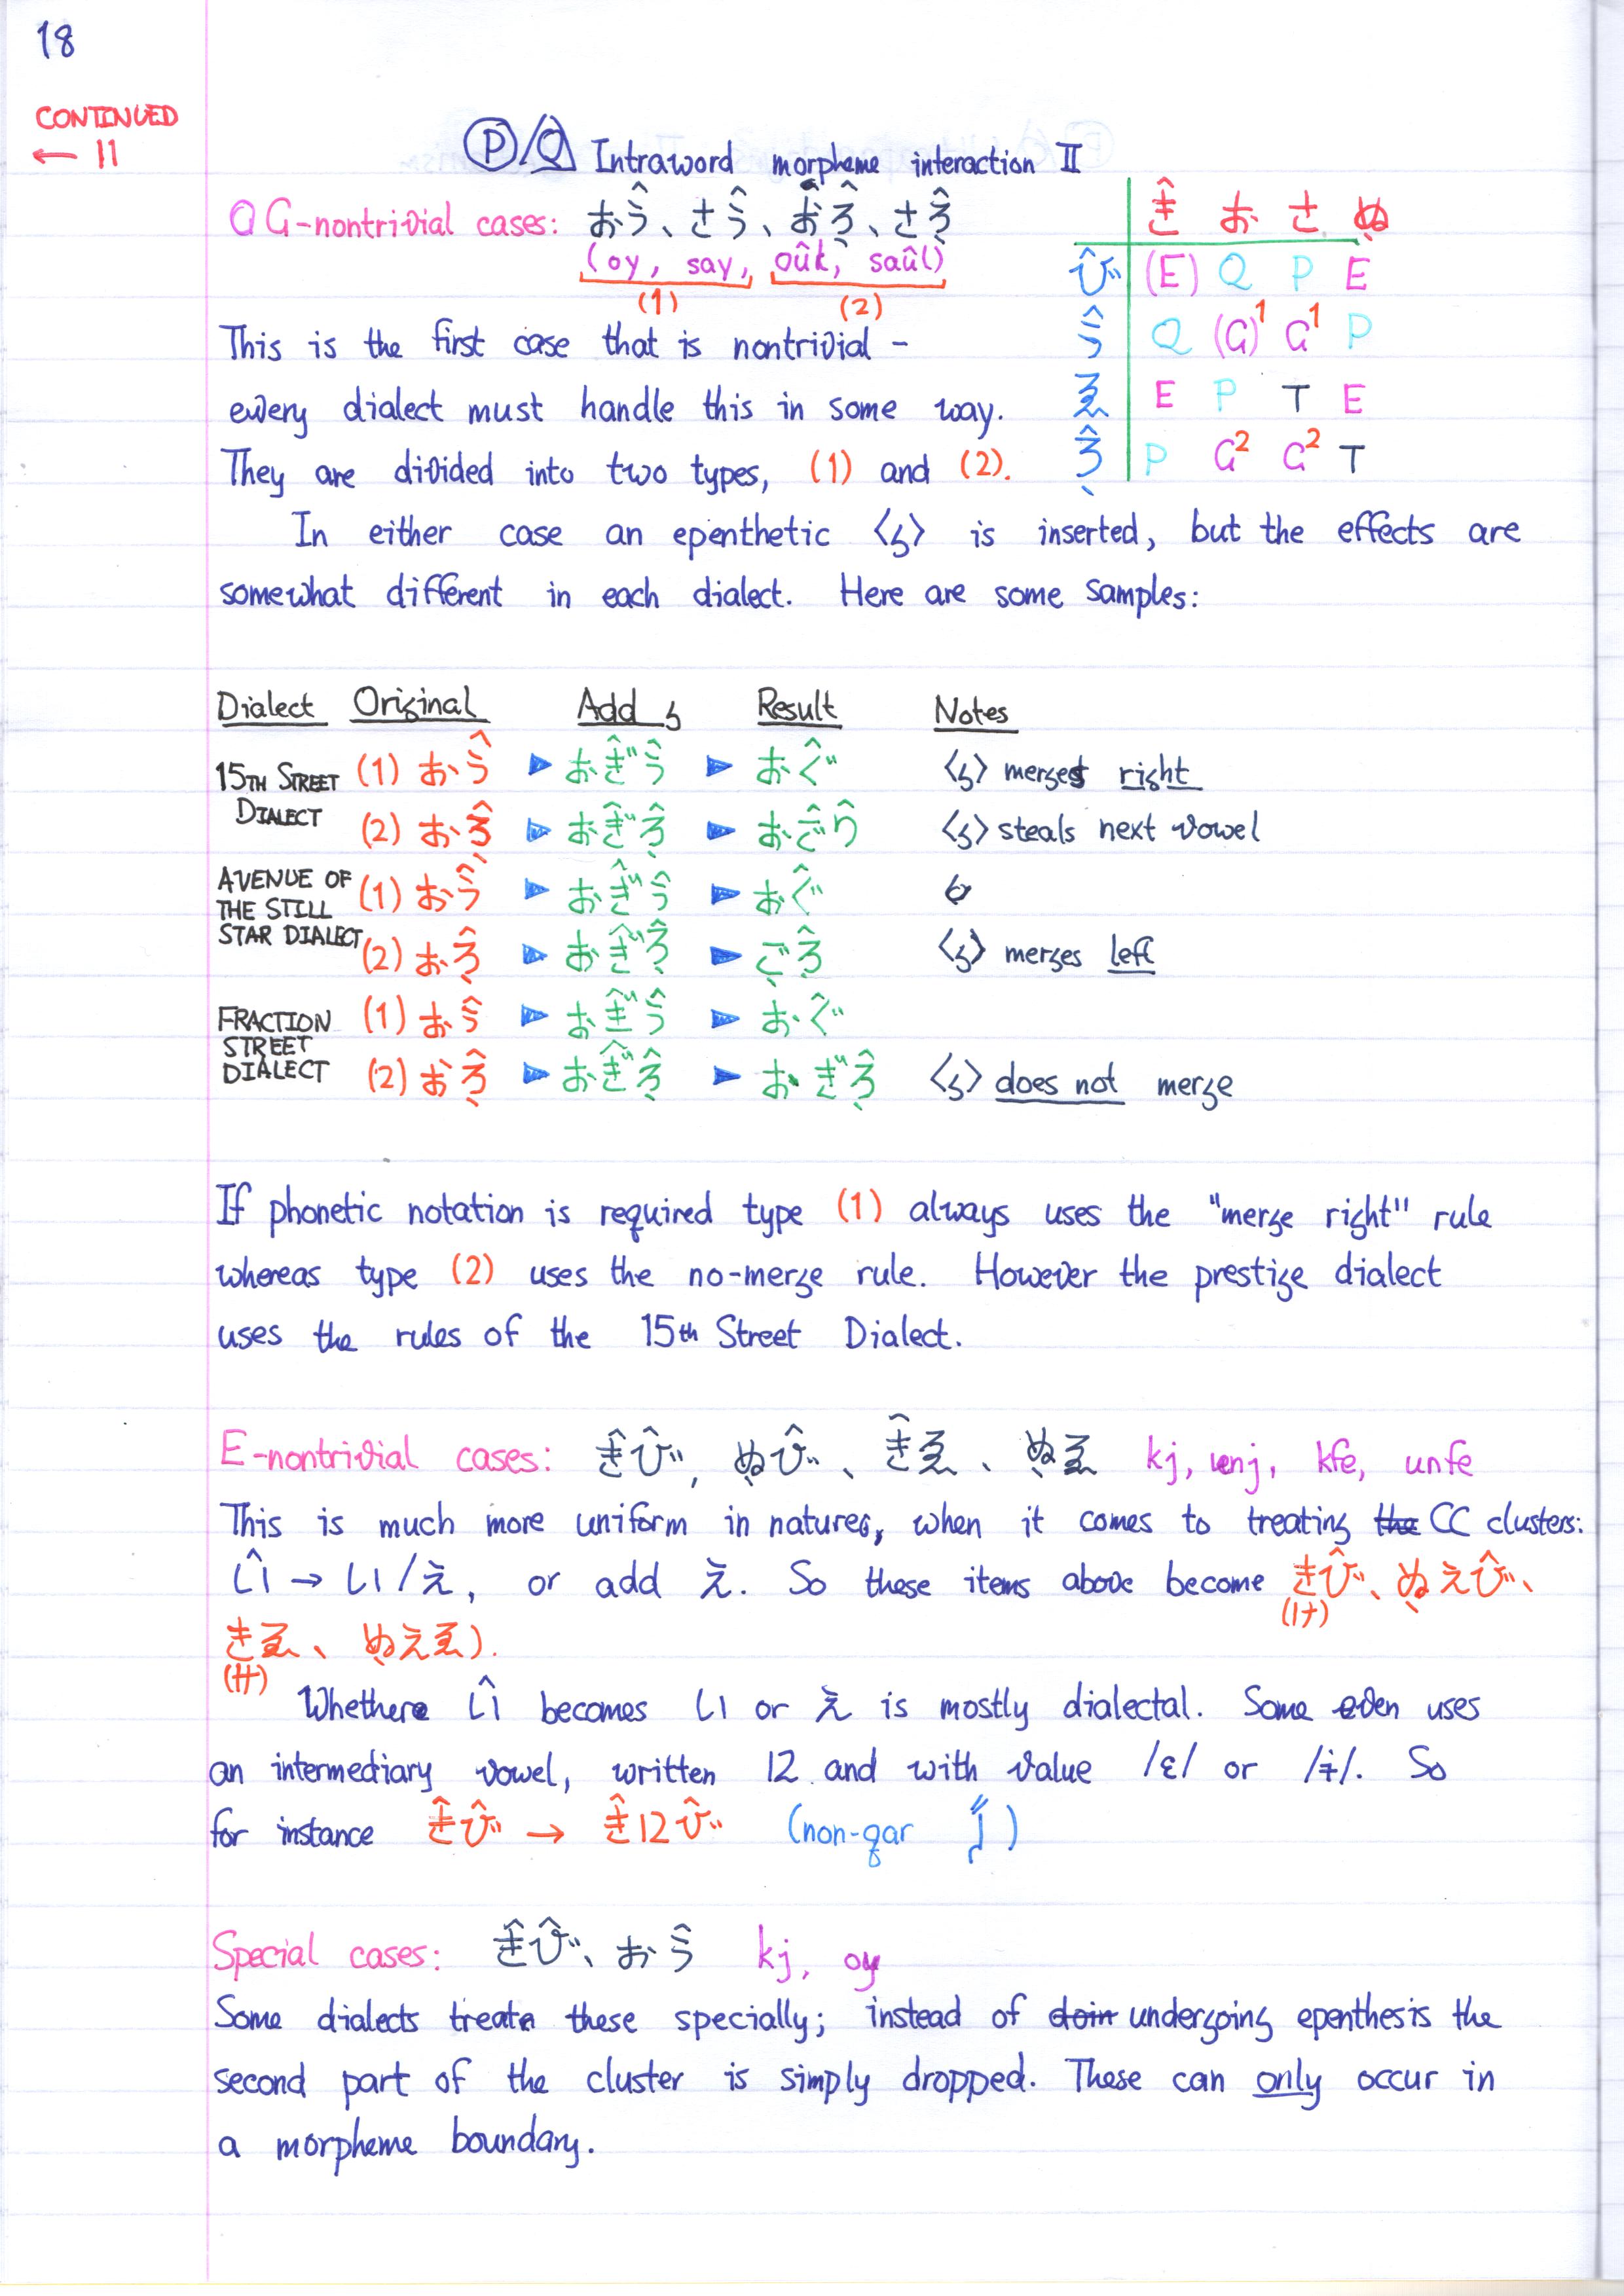 18
CONTINUED
← 11
Ⓟ/Q Intraword morpheme interaction II
G-nontrivial cases: おう̂、さう̂、おろ̣̂、さろ̣̂
(oy, say, oûl, saûl)
(1) (2)
き̂ お さ ぬ̣
び̂ (E) Q P E
う̂ Q (G)¹ G¹ P
ゑ E P T E
ろ̣̂ P G² G² T
This is the first case that is nontrivial -
every dialect must handle this in some way.
They are divided into two types, (1) and (2).
In either case an epenthetic ⟨ʒ⟩ is inserted, but the effects are
somewhat different in each dialect. Here are some samples:
Dialect Original Add ʒ Result Notes
15TH STREET DIALECT (1) おう̂ ▶ おぎ̂う̂ ▶ おぐ̂ ⟨ʒ⟩ merges right
(2) おろ̣̂ ▶ おぎ̂ろ̣̂ ▶ おご̂り̂ ⟨ʒ⟩ steals next vowel
AVENUE OF THE STILL STAR DIALECT (1) おう̂ ▶ おぎ̂う̂ ▶ おぐ̂
(2) おろ̣̂ ▶ おぎ̂ろ̣̂ ▶ ご̣ろ̣̂ ⟨ʒ⟩ merges left
FRACTION STREET DIALECT (1) おう̂ ▶ おぎ̂う̂ ▶ おぐ̂
(2) おろ̣̂ ▶ おぎ̂ろ̣̂ ▶ おぎろ̣̂ ⟨ʒ⟩ does not merge
If phonetic notation is required type (1) always uses the "merge right" rule
whereas type (2) uses the no-merge rule. However the prestige dialect
uses the rules of the 15th Street Dialect.
E-nontrivial cases: き̂び̂、ぬ̣び̂、き̂ゑ、ぬ̣ゑ kj, unj, kfe, unfe
This is much more uniform in nature, when it comes to treating the CC clusters:
い̂ → い/え, or add え. So these items above become きび̂、ぬ̣えび̂、
(1ナ)
きゑ、ぬ̣えゑ).
(サ)
Whether い̂ becomes い or え is mostly dialectal. Some even uses
an intermediary vowel, written 12 and with value /ɛ/ or /ɨ/. So
for instance き̂び̂ → き̂12び̂ (non-qar )
Special cases: き̂び̂、おう̂ kj, oy
Some dialects treat these specially; instead of doin undergoing epenthesis the
second part of the cluster is simply dropped. These can only occur in
a morpheme boundary.